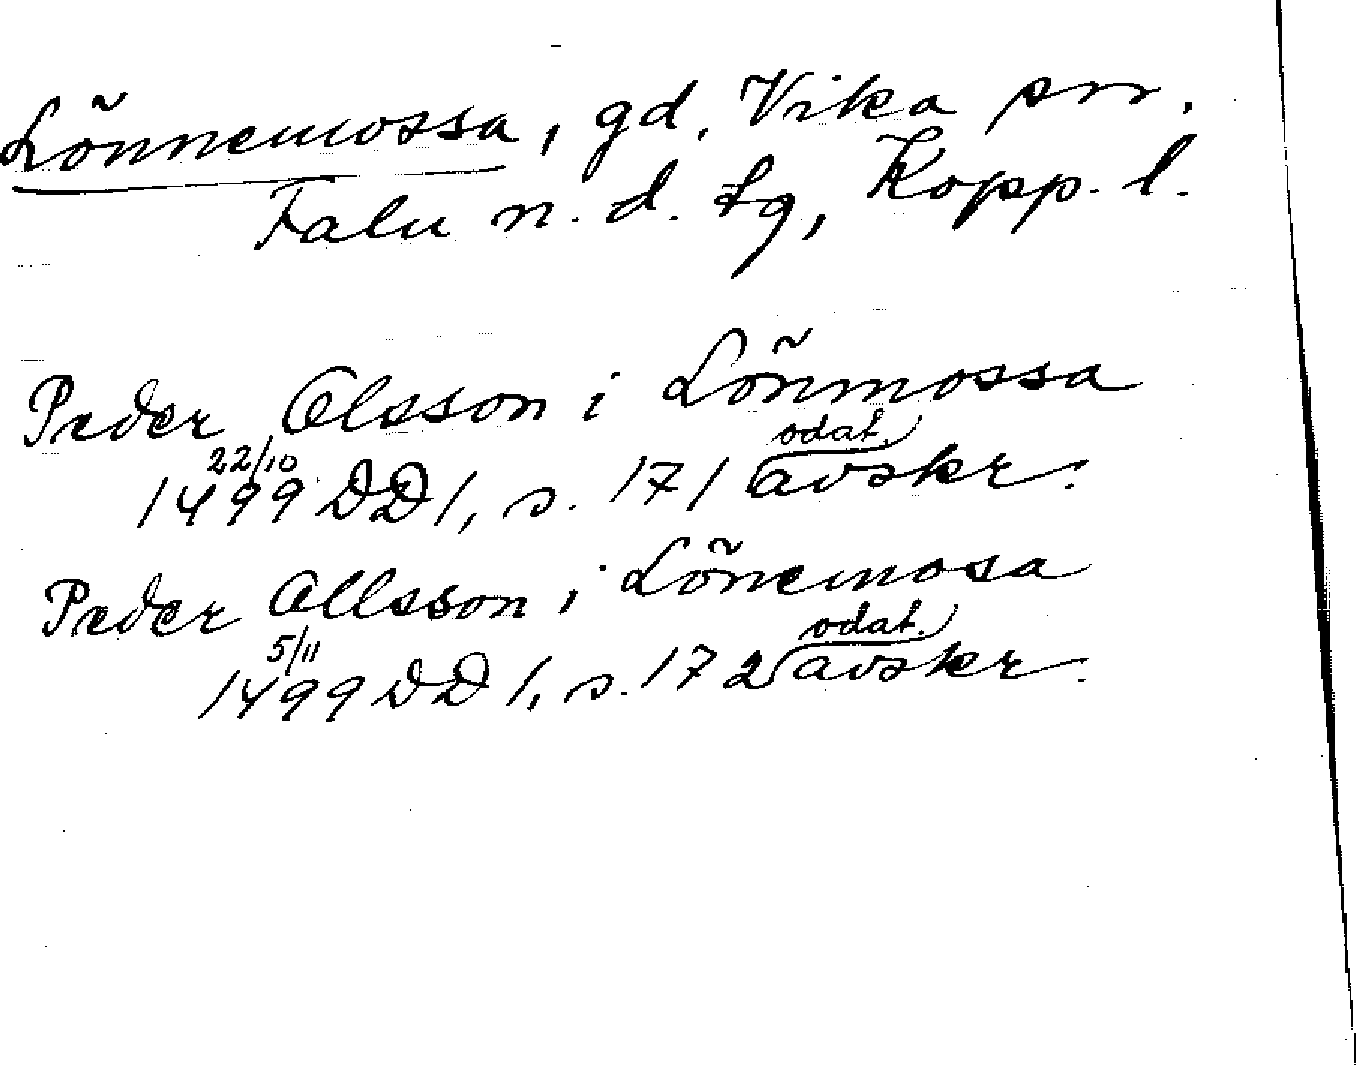 Lönnemossa, gd, Vika sn.
Falu n. d. tg, Kopp. l.
Peder Olsson i Lönmossa
22/10 odat.
1499 DD1, s. 171 avskr.
Peder Ollsson i Lönemosa
5/11 odat.
1499 DD1, s. 172 avskr.